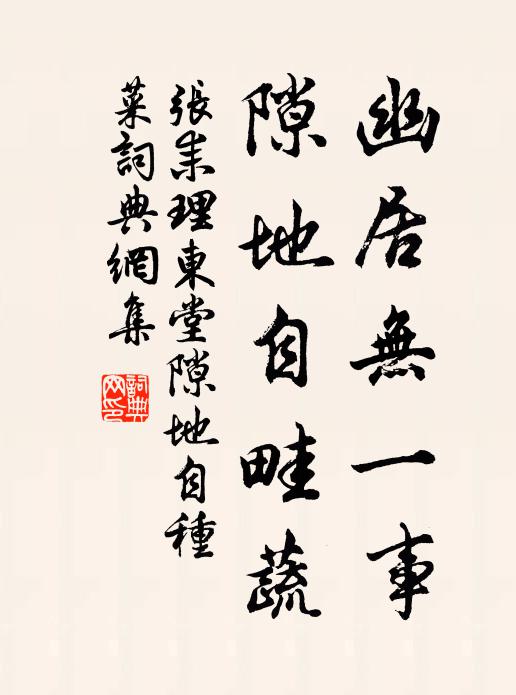 幽居無一事
隙地自畦蔬
張耒理東堂隙地自種
菜詞典網集
詞典
网印